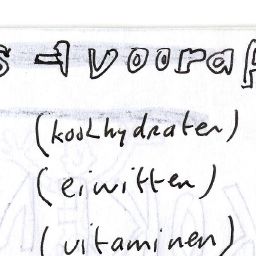 vooraf
(koolhydraten)
(eiwitten)
(vitaminen)